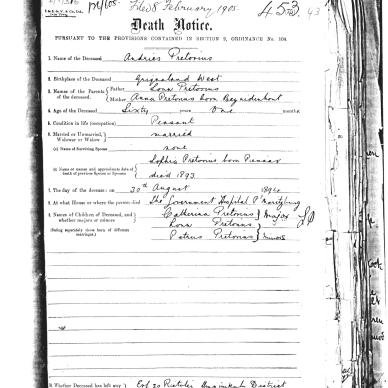 Filed 8 February 1905
453
43
Death Notice.
PURSUANT TO THE PROVISIONS CONTAINED IN SECTION 9, ORDINANCE No. 104.
1. Name of the Deceased Andries Pretorius
2. Birthplace of the Deceased Griqualand West
3. Names of the Parents of the deceased. Father Louw Pretorius
Mother Anna Pretorius born Bezuidenhout
4. Age of the Deceased Sixty years One months
5. Condition in life (occupation) Peasant
6. Married or Unmarried, Widower or Widow married
(a) Name of Surviving Spouse none
Sophia Pretorius born Pienaar
(b) Name or names and approximate date of death of previous Spouse or Spouses died 1893
7. The day of the decease: on 30th August
8. At what House or where the person died The Government Hospital P'maritzburg
9. Names of Children of Deceased, and whether majors or minors Catherina Pretorius major
Louw Pretorius
(Being separately those born of different marriages.) Petrus Pretorius minors
Whether Deceased has left any Erf 20 District